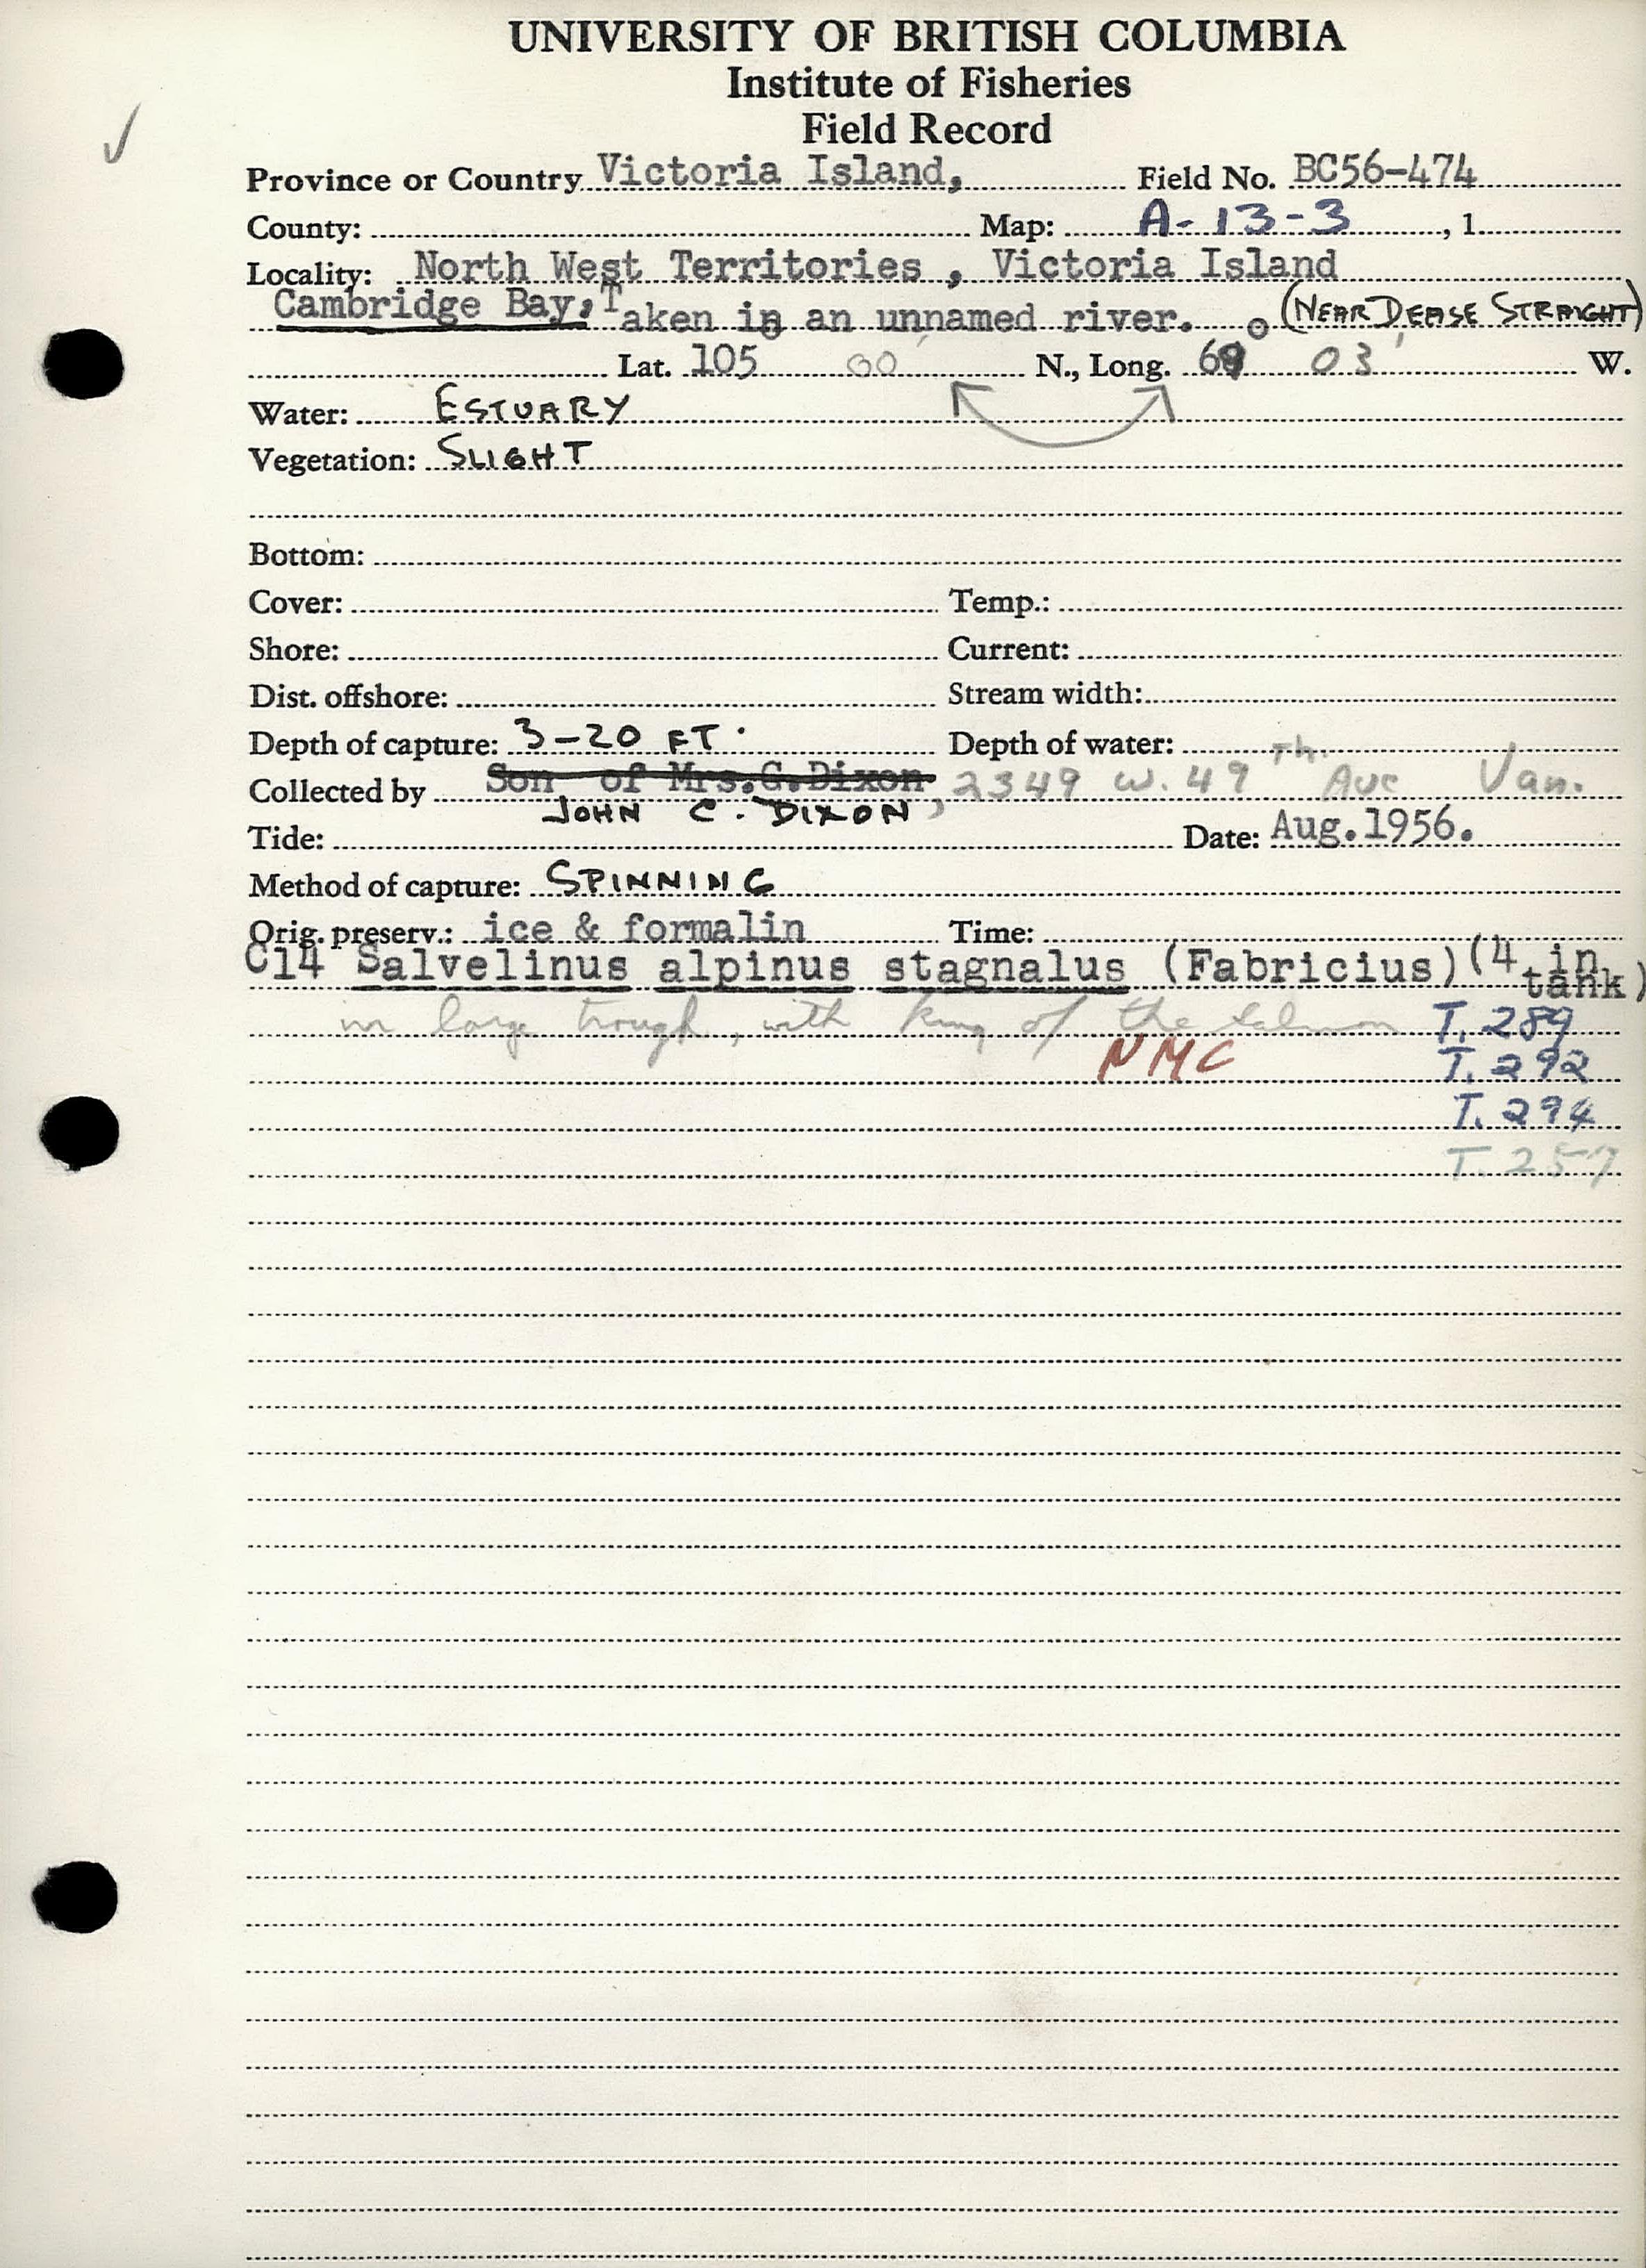 UNIVERSITY OF BRITISH COLUMBIA
Institute of Fisheries
Field Record
✓
Province or Country Victoria Island, Field No. BC56-474
County: Map: A-13-3, 1
Locality: North West Territories, Victoria Island
Cambridge Bay, Taken in an unnamed river. (NEAR DEASE STRAIGHT)
Lat. 105 00' N., Long. 69° 03' W.
Water: ESTUARY
Vegetation: SLIGHT
Bottom:
Cover: Temp.:
Shore: Current:
Dist. offshore: Stream width:
Depth of capture: 3-20 FT. Depth of water:
Collected by Son of Mrs.G.Dixon 2349 W. 49th. Ave Van.
JOHN C. DIXON,
Tide: Date: Aug.1956.
Method of capture: SPINNING
Orig. preserv.: ice & formalin Time:
C14 Salvelinus alpinus stagnalus (Fabricius)(4 in tank)
in large trough, with King of the Salmon T. 289
NMC T. 292
T. 294
T. 257